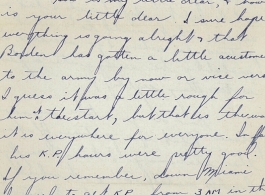 is my little dear, & how
is your little dear I sure hope
everything is going alright & that
has gotten a little accustomed
to the army by now or vice versa
I guess it was a little rough for
him at the start, but that is the way
it is everywhere for everyone. In
his K.P. hours were pretty good.
If you remember, down Miami
to get K.P. from 3 AM in th